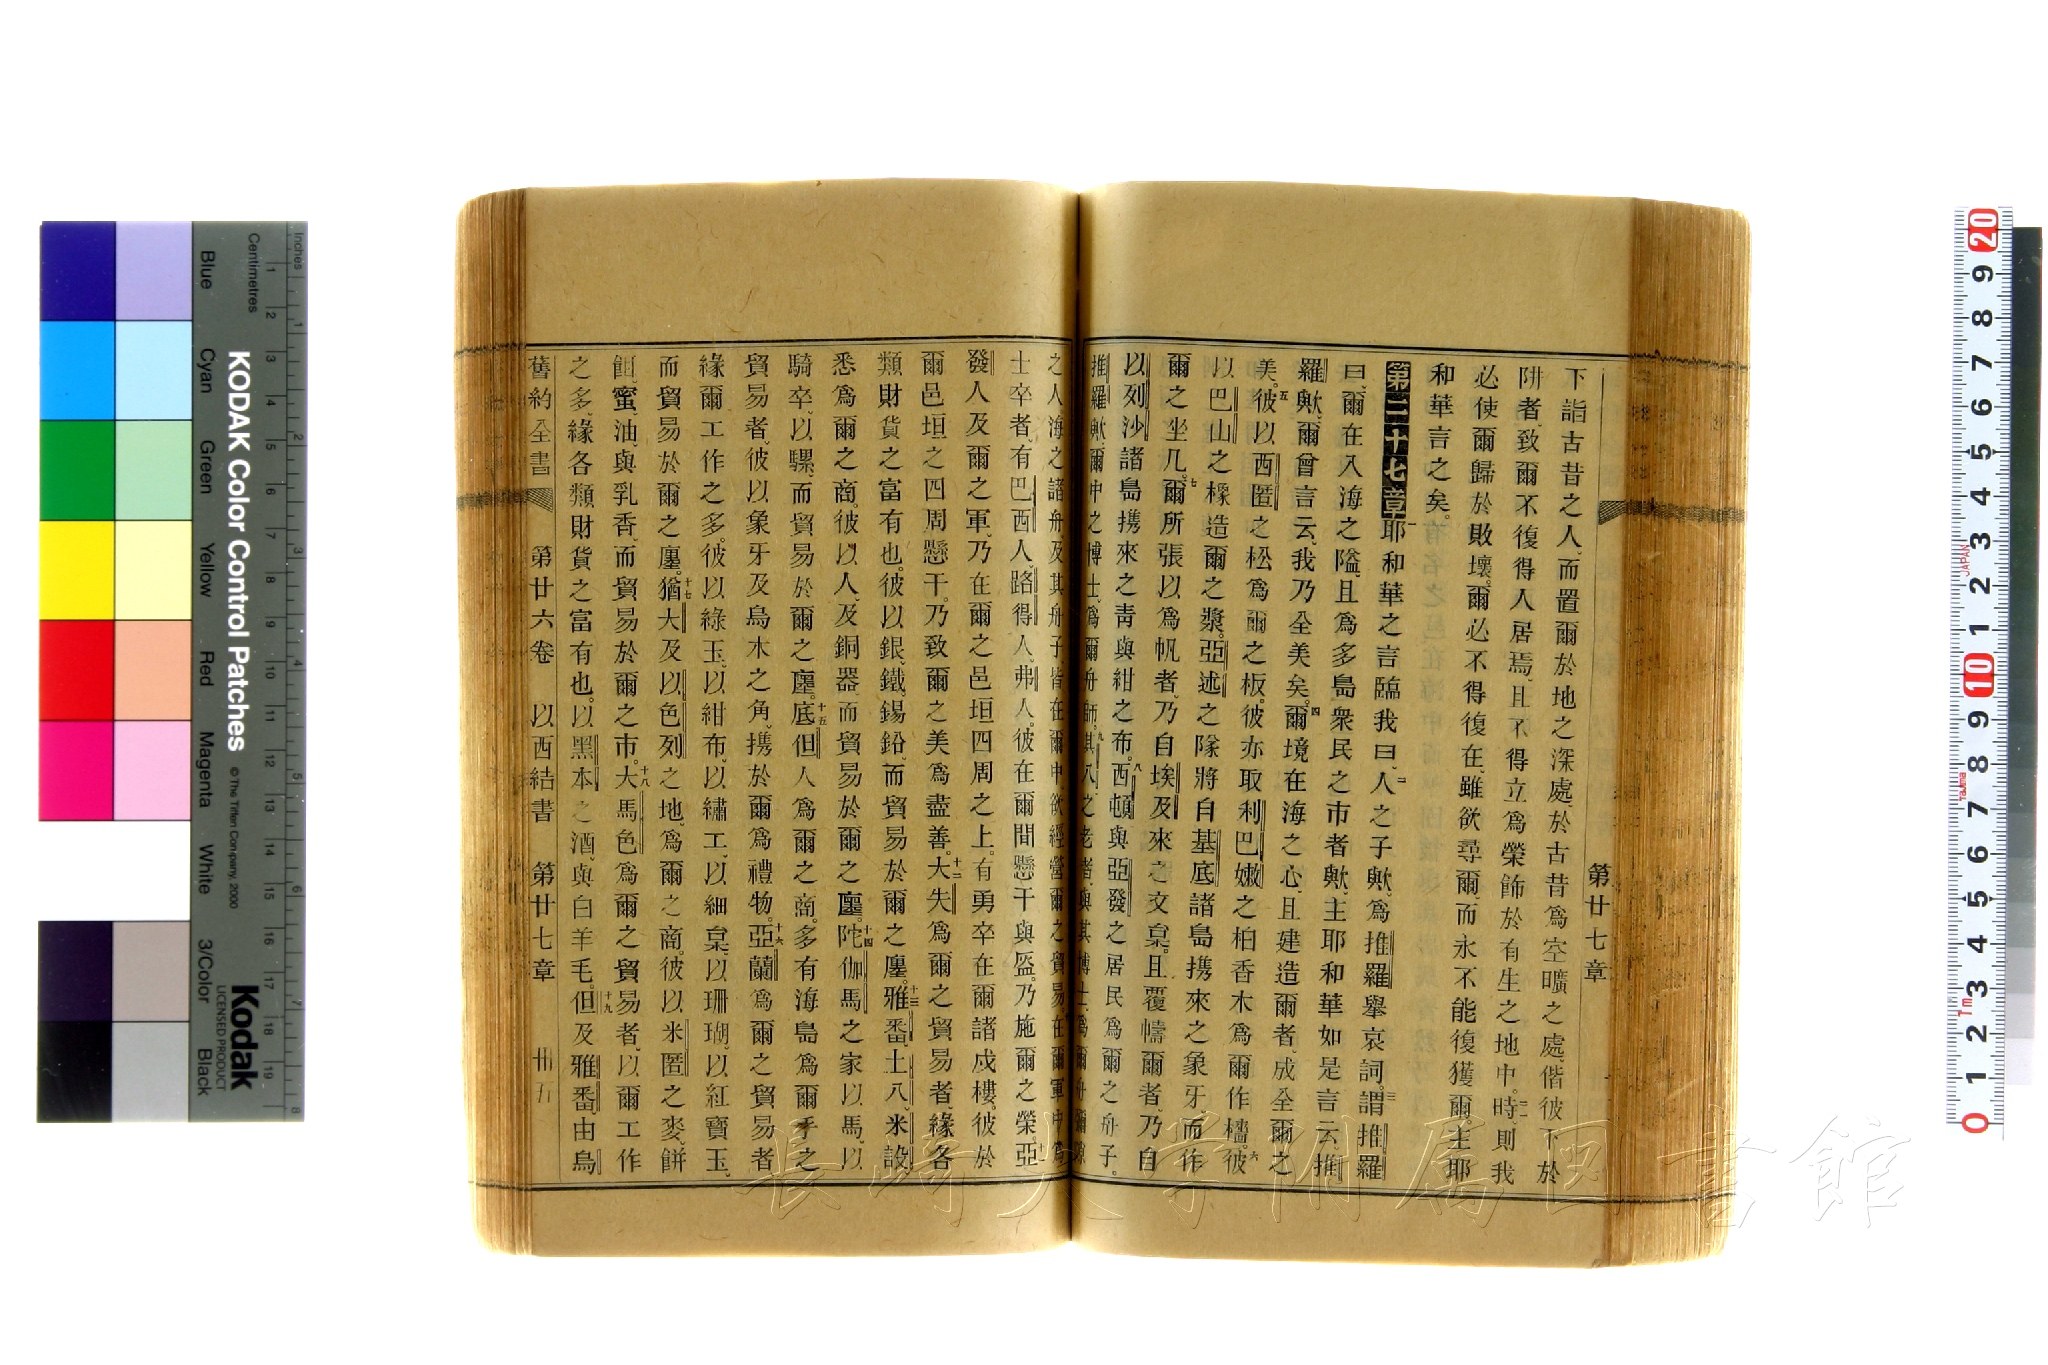 第廿七章
下詣古昔之人、而置爾於地之深處、於古昔爲空曠之處、偕彼下於
阱者、致爾不復得人居焉、且不得立爲榮飾於有生之地中、時、則我
必使爾歸於敗壞。爾必不得復在、雖欲尋爾、而永不能復獲爾、主耶
和華言之矣。
第二十七章 一耶和華之言臨我曰、二人之子歟、爲推羅舉哀詞。三謂推羅
曰、爾在入海之隘、且爲多島衆民之市者歟、主耶和華如是言云、推
羅歟、爾曾言云、我乃全美矣。四爾境在海之心、且建造爾者、成全爾之
美。五彼以西匿之松爲爾之板。彼亦取利巴嫩之柏香木爲爾作檣。六彼
以巴山之橡造爾之槳。亞述之隊將自基底諸島攜來之象牙、而作
爾之坐几。七爾所張以爲帆者、乃自埃及來之文枲。且覆幬爾者、乃自
以列沙諸島攜來之青與紺之布。八西頓與亞發之居民爲爾之舟子。
推羅歟、爾中之博士、爲爾舟師。九其八之老者、與其博士、爲爾舟彌隙
之人、海之諸舟、及其舟子、皆在爾中、欲經營爾之貿易、在爾軍中爲
士卒者、有巴西人、路得人、弗人。彼在爾間懸干與盔。乃施爾之榮。十一亞
發人及爾之軍、乃在爾之邑垣四周之上。有勇卒在爾諸戍樓。彼於
爾邑垣之四周懸干。乃致爾之美爲盡善。十二大失爲爾之貿易者、緣各
類財貨之富有也。彼以銀、鐵、錫、鉛、而貿易於爾之廛。十三雅番、土八、米設
悉爲爾之商。彼以人、及銅器、而貿易於爾之廛。十四陀伽馬之家以馬、以
騎卒、以騾、而貿易於爾之廛。十五底但人爲爾之商。多有海島爲爾手之
貿易者、彼以象牙及烏木之角、攜於爾爲禮物。十六亞蘭爲爾之貿易者
緣爾工作之多。彼以綠玉、以紺布、以繡工、以細枲、以珊瑚、以紅寶玉、
而貿易於爾之廛。十七猶大及以色列之地、爲爾之商。彼以米匿之麥、餅
餌、蜜、油、與乳香、而貿易於爾之市。十八大馬色爲爾之貿易者、以爾工作
之多、緣各類財貨之富有也。以黑本之酒、與白羊毛。十九但及雅番由烏
舊約全書 第廿六卷 以西結書 第廿七章 卅五
長崎大学附属図書館
KODAK Color Control Patches
© The Tiffen Company, 2000
Kodak
LICENSED PRODUCT
Inches
Centimetres
Blue Cyan Green Yellow Red Magenta White 3/Color Black
1 2 3 4 5 6 7 8 9 10 11 12 13 14 15 16 17 18 19
1 2 3 4 5 6 7 8
20 9 8 7 6 5 4 3 2 1 10 9 8 7 6 5 4 3 2 1 0
JAPAN
Tajima